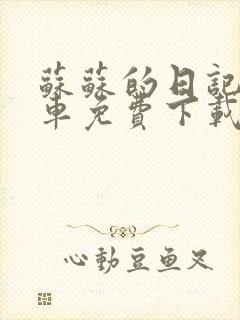 蘇蘇的日記
車免費下載
心動豆魚又